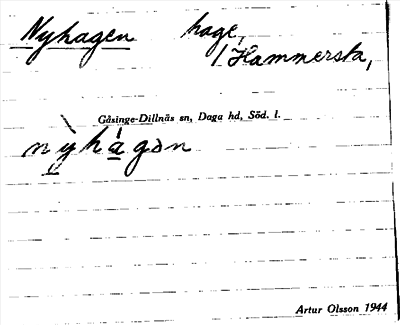 Nyhagen hage,
/ Hammersta,
Gåsinge-Dillnäs sn, Daga hd, Söd. l.
nỳhàgən
Artur Olsson 1944